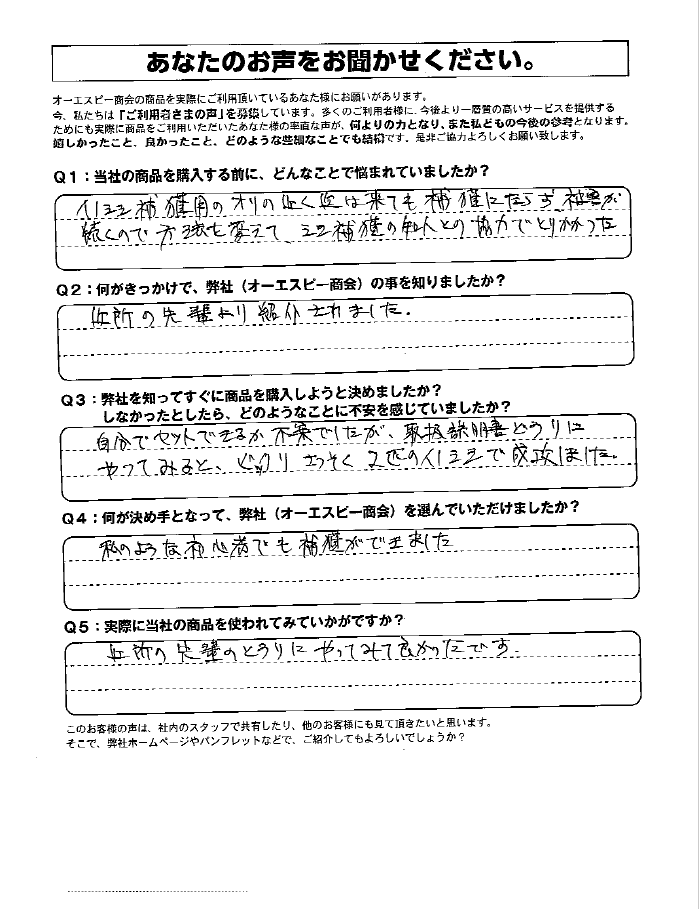 あなたのお声をお聞かせください。
オーエスピー商会の商品を実際にご利用頂いているあなた様にお願いがあります。
今、私たちは「ご利用者さまの声」を募集しています。多くのご利用者様に、今後より一層質の高いサービスを提供する
ためにも実際に商品をご利用いただいたあなた様の率直な声が、何よりの力となり、また私どもの今後の参考となります。
嬉しかったこと、良かったこと、どのような些細なことでも結構です、是非ご協力よろしくお願い致します。
Q1：当社の商品を購入する前に、どんなことで悩まれていましたか？
イノシシ補獲用のオリの近く迄は来ても補獲にならず、被害が
続くので方法を変えて、シシ補獲の知人との協力でとりかかった
Q2：何がきっかけで、弊社（オーエスピー商会）の事を知りましたか？
近所の先輩より紹介されました.
Q3：弊社を知ってすぐに商品を購入しようと決めましたか？
しなかったとしたら、どのようなことに不安を感じていましたか？
自分でセットできるか不案でしたが、取扱説明書どうりに
やってみると、ピッタリさっそく2匹のイノシシで成攻しました。
Q4：何が決め手となって、弊社（オーエスピー商会）を選んでいただけましたか？
私のような初心者でも補獲ができました
Q5：実際に当社の商品を使われてみていかがですか？
近所の先輩のとうりにやってみて良かったです
このお客様の声は、社内のスタッフで共有したり、他のお客様にも見て頂きたいと思います。
そこで、弊社ホームページやパンフレットなどで、ご紹介してもよろしいでしょうか？